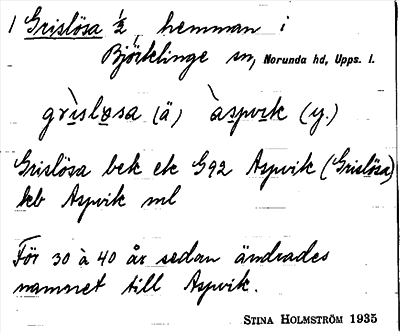 1 Grislösa ½, hemman i
Björklinge sn, Norunda hd, Upps. l.
grìsløsa (ä) àspvik (y.)
Grislösa bek ek G92 Aspvik (Grislösa)
kb Aspvik ml
För 30 à 40 år sedan ändrades
namnet till Aspvik.
STINA HOLMSTRÖM 1935